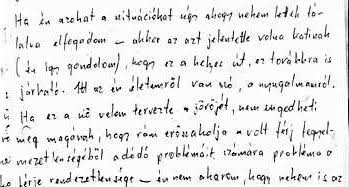 Ha én azokat a szituációkat úgy ahogy nekem lettek tá-
lalva elfogadom – akkor az azt jelentette volna katinak
(én így gondolom), hogy ez a helyes út, ez továbbra is
járható. Itt az én életemről van szó, a nyugalmamról.
Ha ez a nő velem tervezte a jövőjét, nem engedheti
meg magának, hogy rám erőszakolja a volt férj
mezetlenségéből adódó problémáit, számára probléma a
férje rendezetlensége – én nem akarom, hogy nekem is az